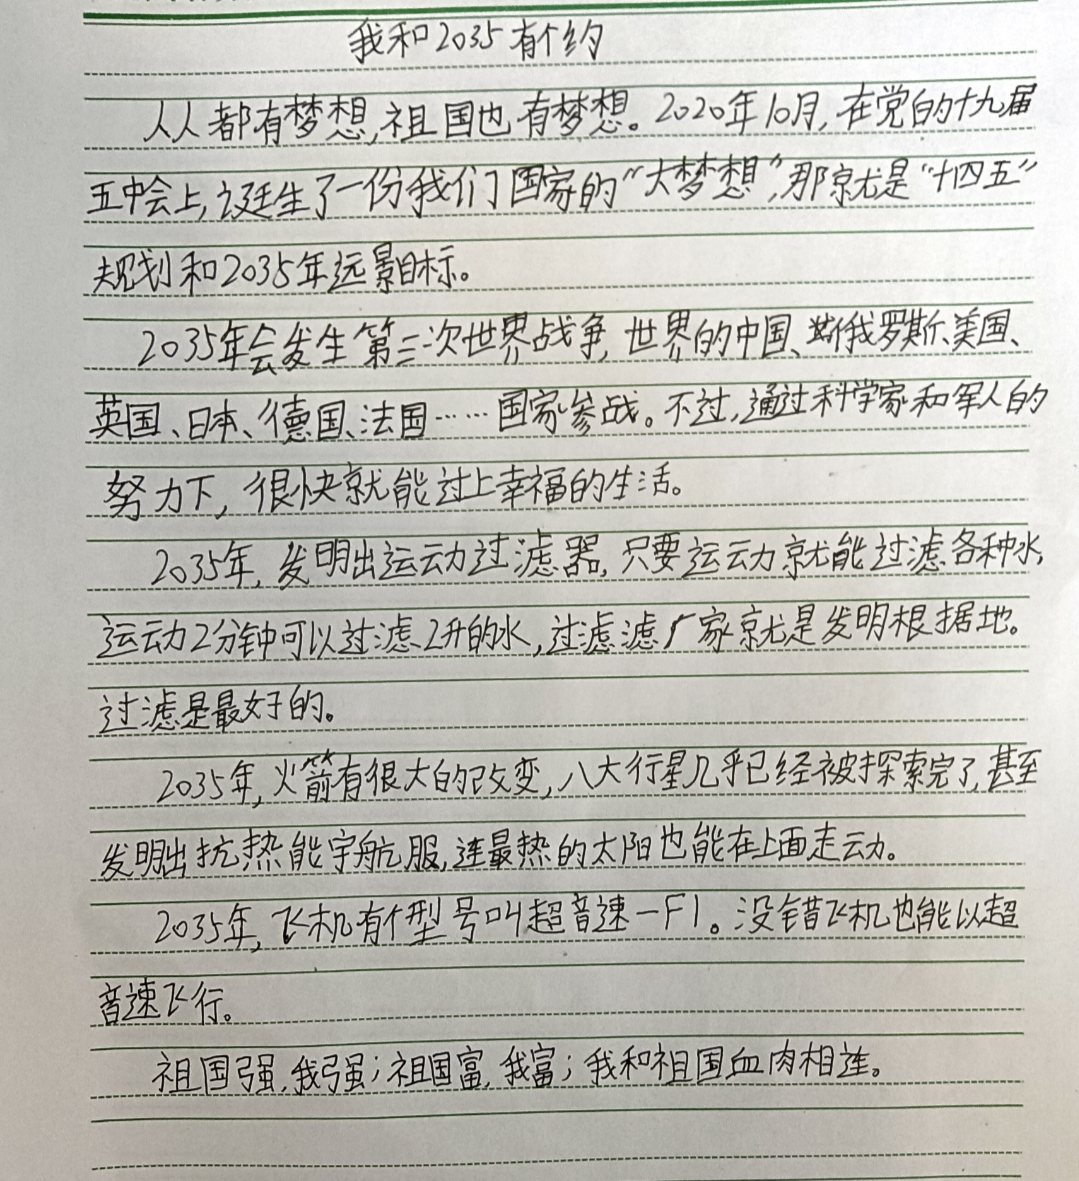 我和2035有个约
人人都有梦想,祖国也有梦想。2020年10月,在党的十九届
五中会上,诞生了一份我们国家的“大梦想”,那就是“十四五”
规划和2035年远景目标。
2035年会发生第三次世界战争,世界的中国、俄罗斯、美国、
英国、日本、德国、法国……国家参战。不过,通过科学家和军人的
努力下,很快就能过上幸福的生活。
2035年,发明出运动过滤器,只要运动就能过滤各种水,
运动2分钟可以过滤2升的水,过滤滤厂家就是发明根据地。
过滤是最好的。
2035年,火箭有很大的改变,八大行星几乎已经被探索完了,甚至
发明出抗热能宇航服,连最热的太阳也能在上面走动。
2035年,飞机有个型号叫超音速一F1。没错飞机也能以超
音速飞行。
祖国强,我强;祖国富,我富;我和祖国血肉相连。